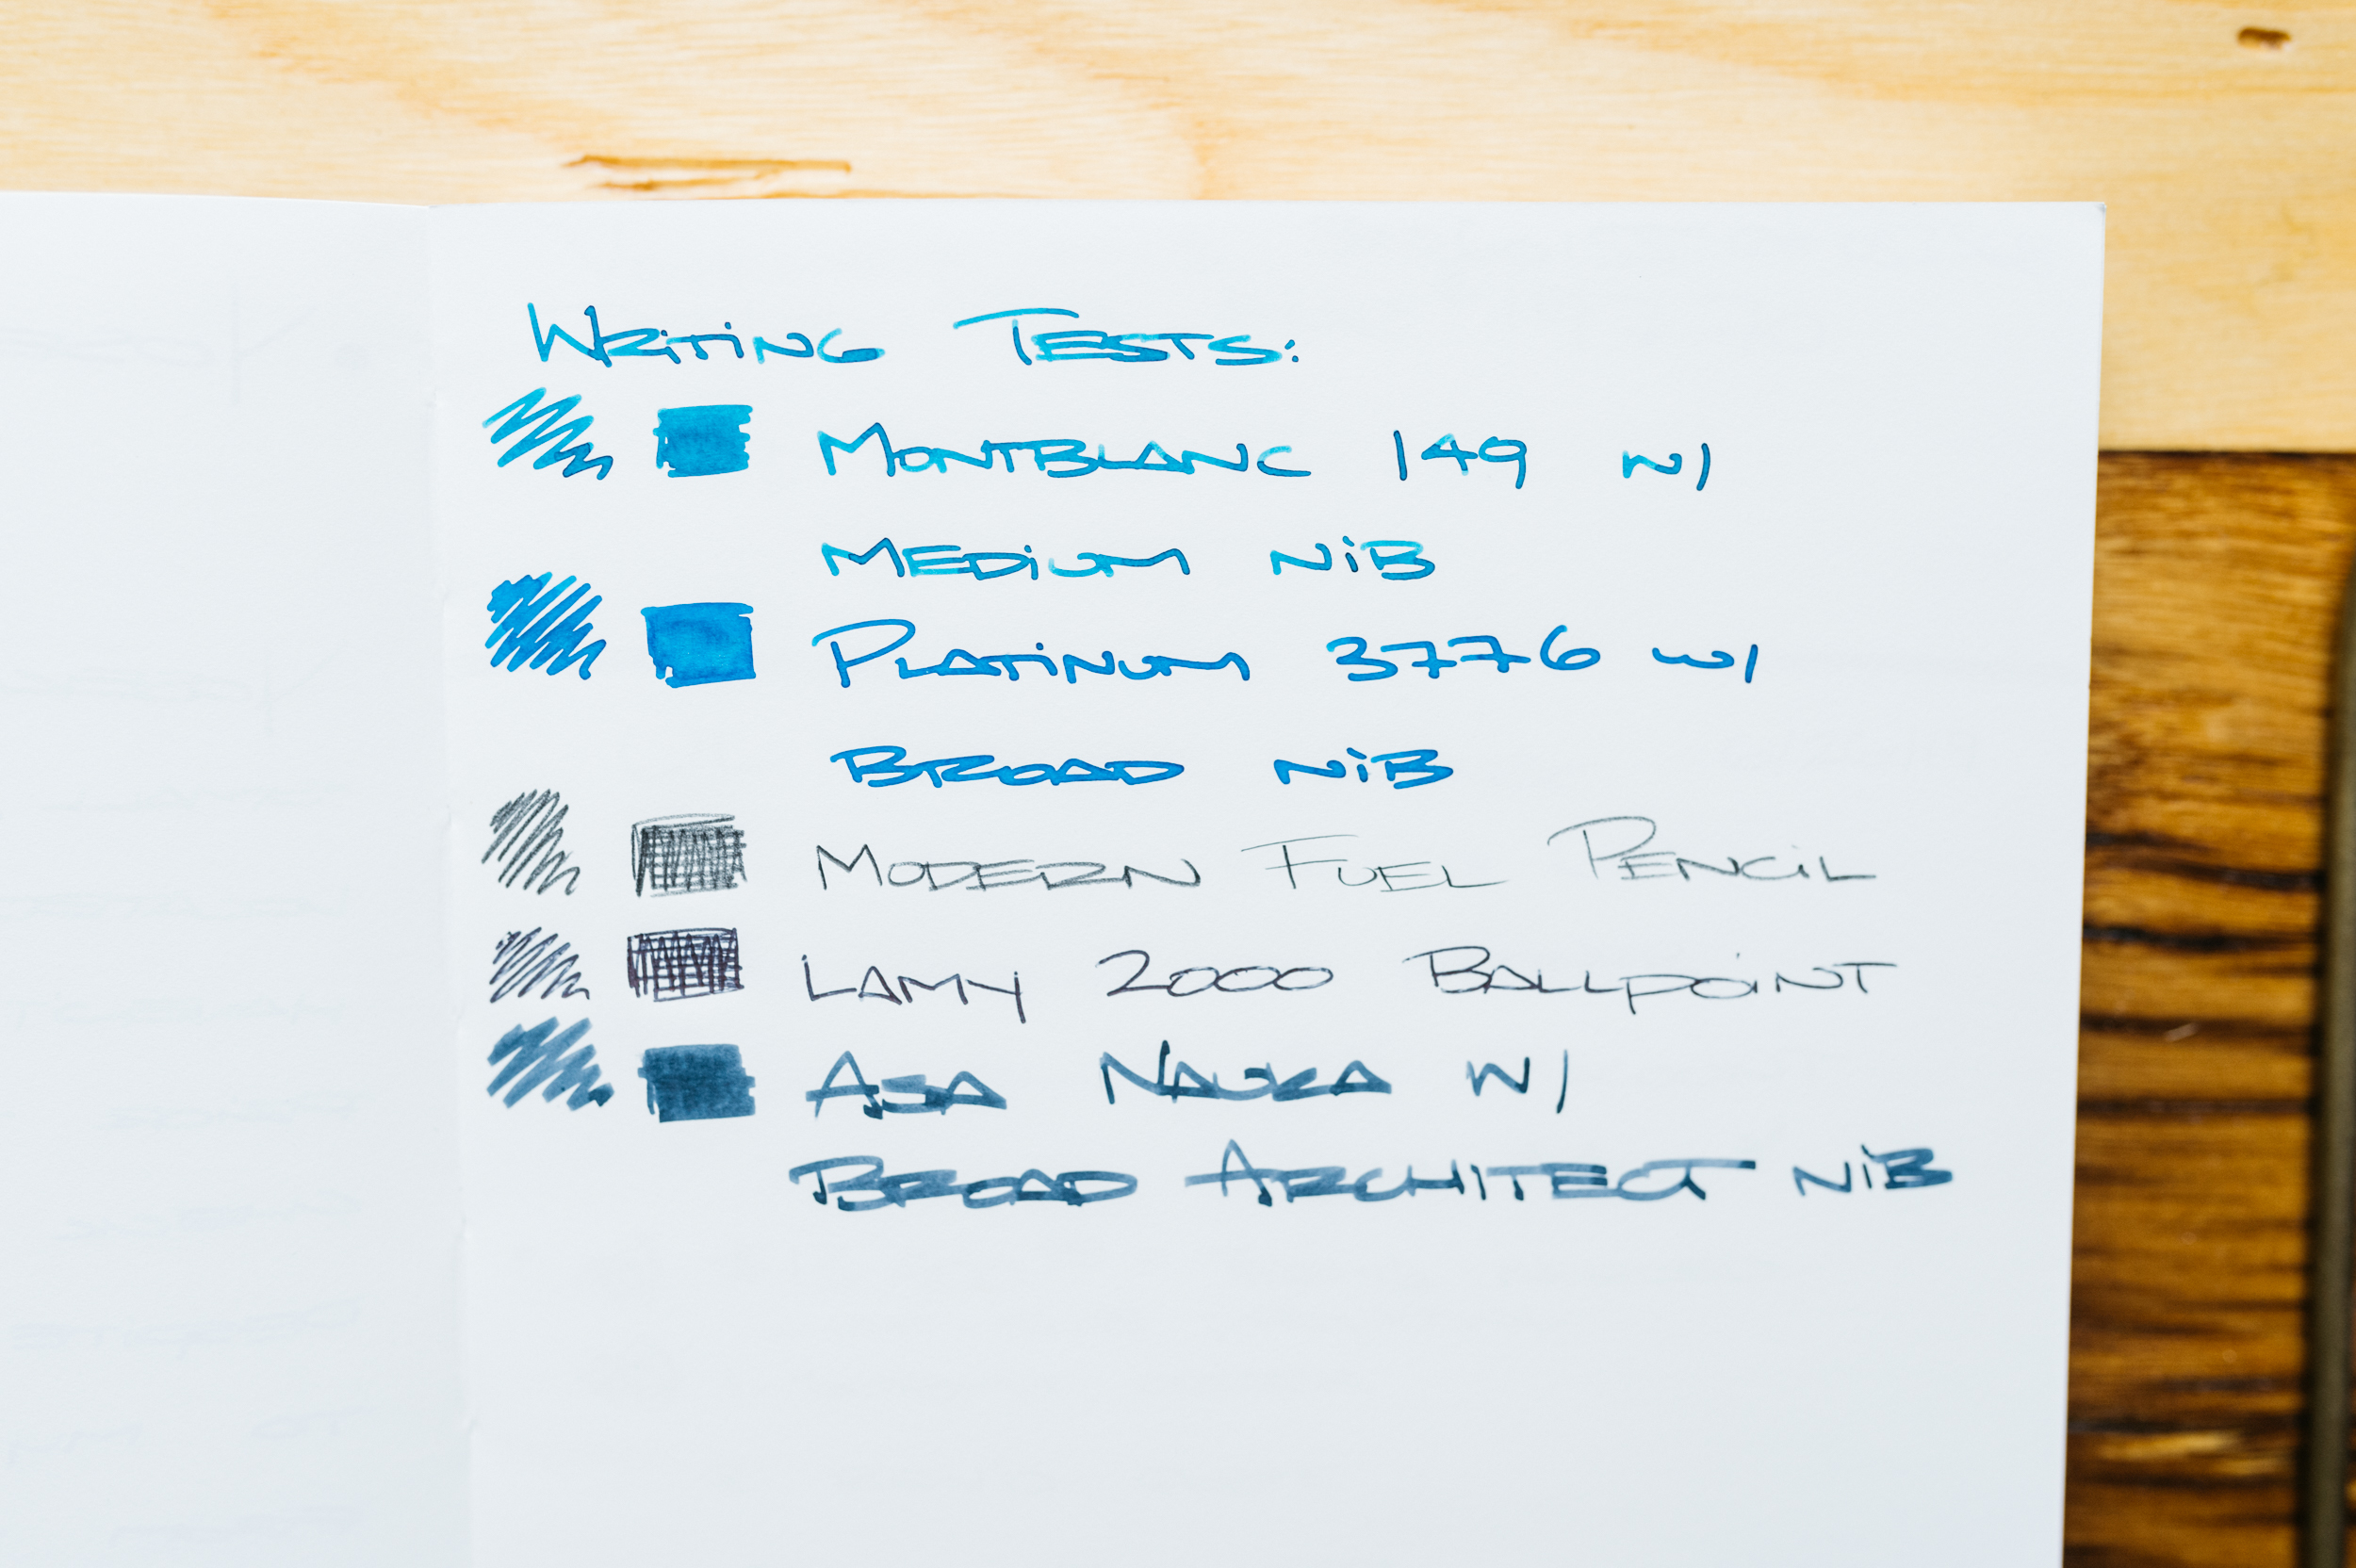 WRiTiNG TESTS:
MONTBLANC 149 W/
MEDiUM NiB
PLATiNUM 3776 W/
BROAD NiB
MODERN FUEL PENCiL
LAMY 2000 BALLPOiNT
ASA NAUKA W/
BROAD ARCHITECT NiB